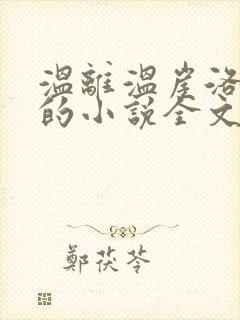 溫離溫崖洛
的小說全文
鄭茯苓